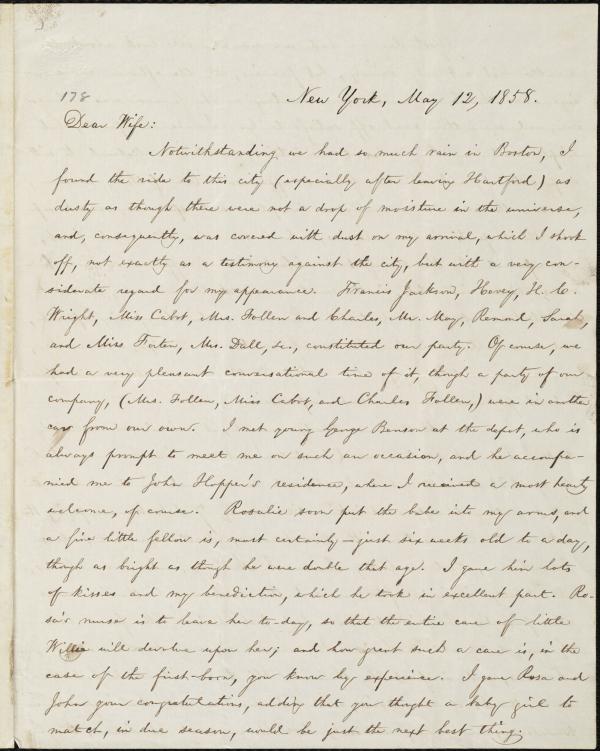 178
New York, May 12, 1858.
Dear Wife:
Notwithstanding we had so much rain in Boston, I
found the ride to this city (especially after leaving Hartford) as
dusty as though there were not a drop of moisture in the universe,
and, consequently, was covered with dust on my arrival, which I shook
off, not exactly as a testimony against the city, but with a very con-
siderate regard for my appearance. Francis Jackson, Hovey, H. C.
Wright, Miss Cabot, Mrs. Follen and Charles, Mr. May, Remond, Sarah,
and Miss Forten, Mrs. Dall, &c., constituted our party. Of course, we
had a very pleasant conversational time of it, though a party of our
company, (Mrs. Follen, Miss Cabot, and Charles Follen,) were in another
car from our own. I met young George Benson at the depot, who is
always prompt to meet me on such an occasion, and he accompa-
nied me to John Hopper's residence, where I received a most hearty
welcome, of course. Rosalie soon put the babe into my arms, and
a fine little fellow is, most certainly—just six weeks old to a day,
though as bright as though he were double that age. I gave him lots
of kisses and my benediction, which he took in excellent part. Ro-
sa's nurse is to leave her to-day, so that the entire care of little
Willie will devolve upon her; and how great such a care is, in the
case of the first-born, you know by experience. I gave Rosa and
John your congratulations, adding that you thought a baby girl to
match, in due season, would be just the next best thing.